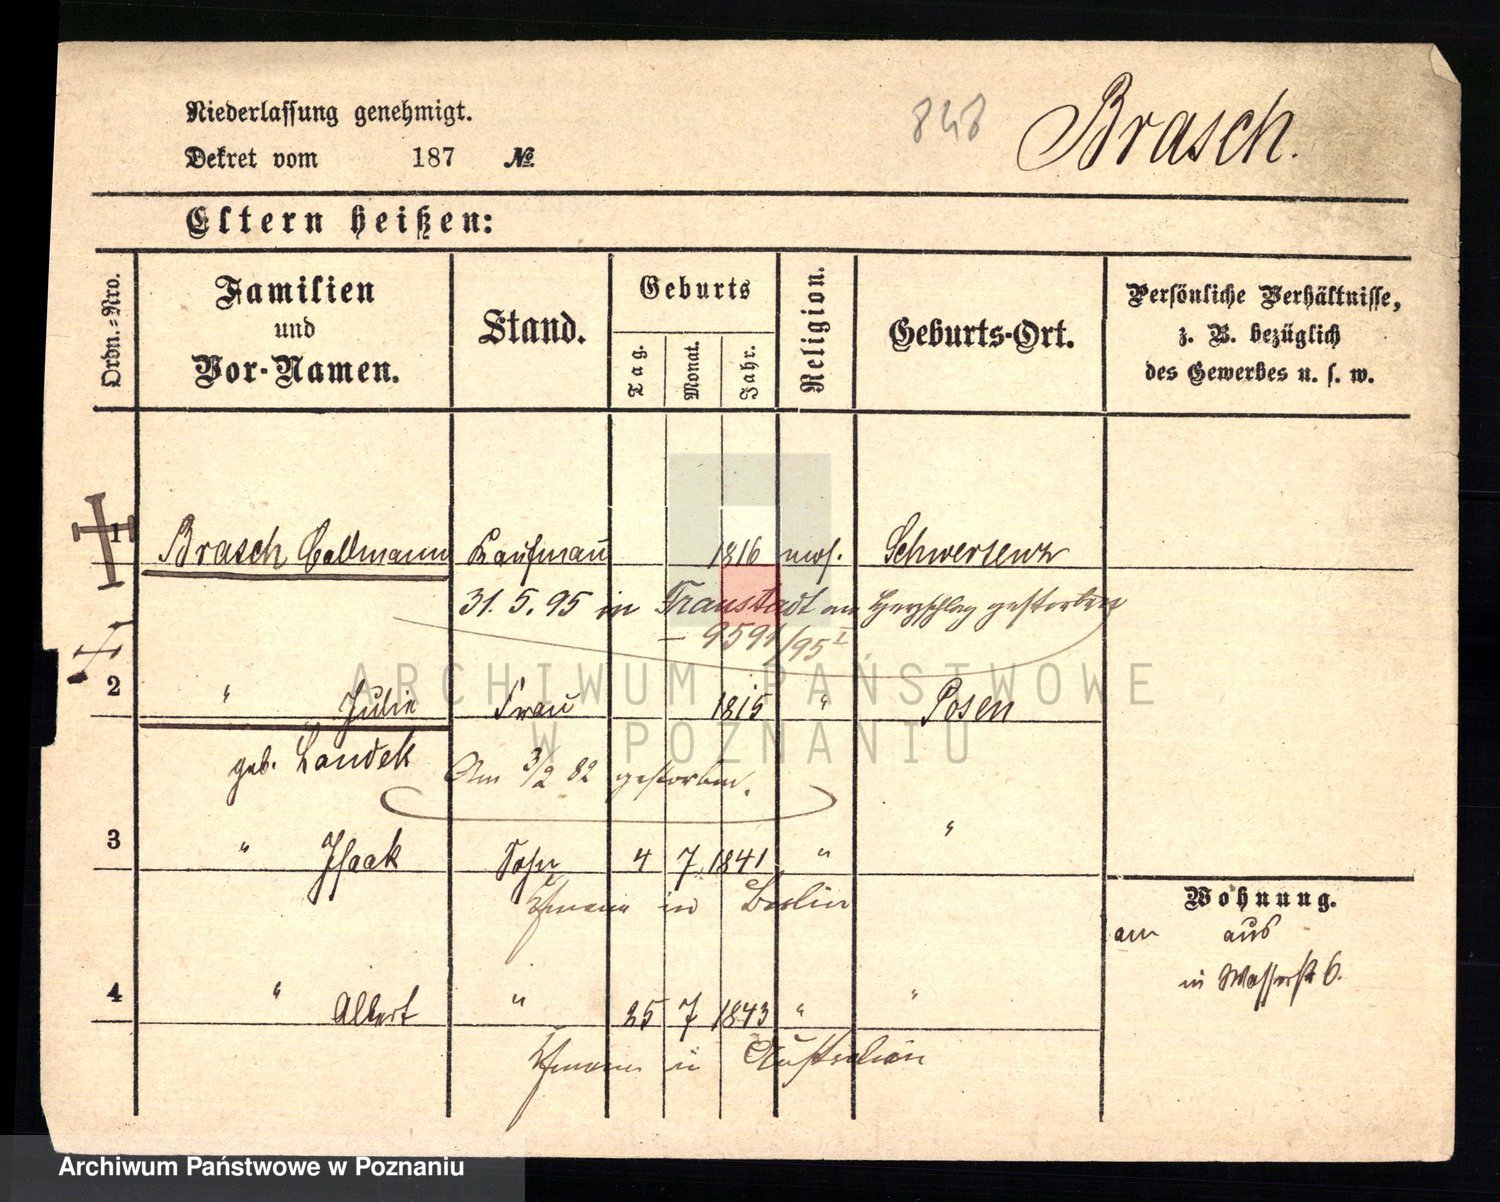 Niederlassung genehmigt.
848
Brasch.
Dekret vom 187 №
Eltern heißen:
Ordn.=Nro.
Familien und Vor-Namen.
Stand.
Geburts
Tag.
Monat.
Jahr.
Religion.
Geburts-Ort.
Persönliche Verhältnisse,
z. B. bezüglich
des Gewerbes u. s. w.
1 Brasch Callmann Kaufmann 1816 mos. Schwersenz
31. 5. 95 in Fraustadt am Herzschlag gestorben
— 9591/95 I
2 " Julie Frau 1815 " Posen
geb. Landek
Am 3/2 82 gestorben.
3 " Isaak Sohn 4 7 1841 " "
Kfmann in Berlin
Wohnung.
am aus
in Wasserstr 6.
4 " Albert " 25 7 1843 " "
Kfmann in Australien
ARCHIWUM PAŃSTWOWE
W POZNANIU
Archiwum Państwowe w Poznaniu